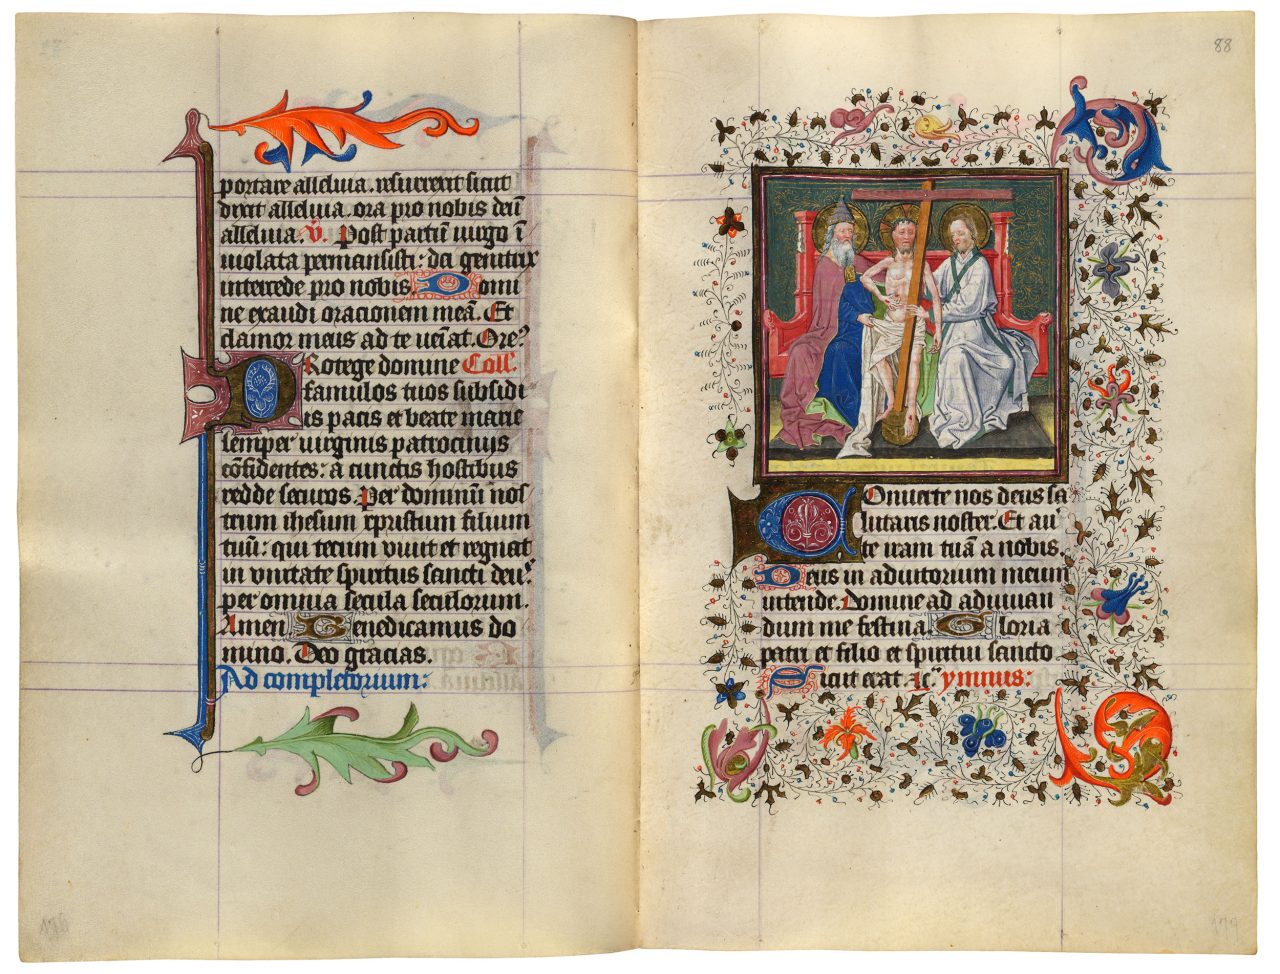 portare alleluia. resurrexit sicut
dixit alleluia. ora pro nobis deū
alleluia. v. Post partū uirgo ī
uiolata permansisti: dei genitrix
intercede pro nobis. Domi
ne exaudi oracionem meā. Et
clamor meus ad te ueīat. Oreꝰ
Protege domine Coll'.
famulos tuos subsidi
is pacis et beate marie
semper uirginis patrociniis
cōfidentes: a cunctis hostibus
redde securos. Per dominū nos
trum ihesum xpristum filium
tuū: qui tecum uiuit et regnat
in vnitate spiritus sancti deus.
per omnia secula seculorum.
Amen Benedicamus do
mino. Deo gracias.
Ad completorium:
88
Conuerte nos deus sa
lutaris noster. Et au
te iram tuā a nobis.
Deus in adiutorium meum
intende. Domine ad adiuuan
dum me festina. Gloria
patri et filio et spiritui sancto
Sicut erat. ymnus: